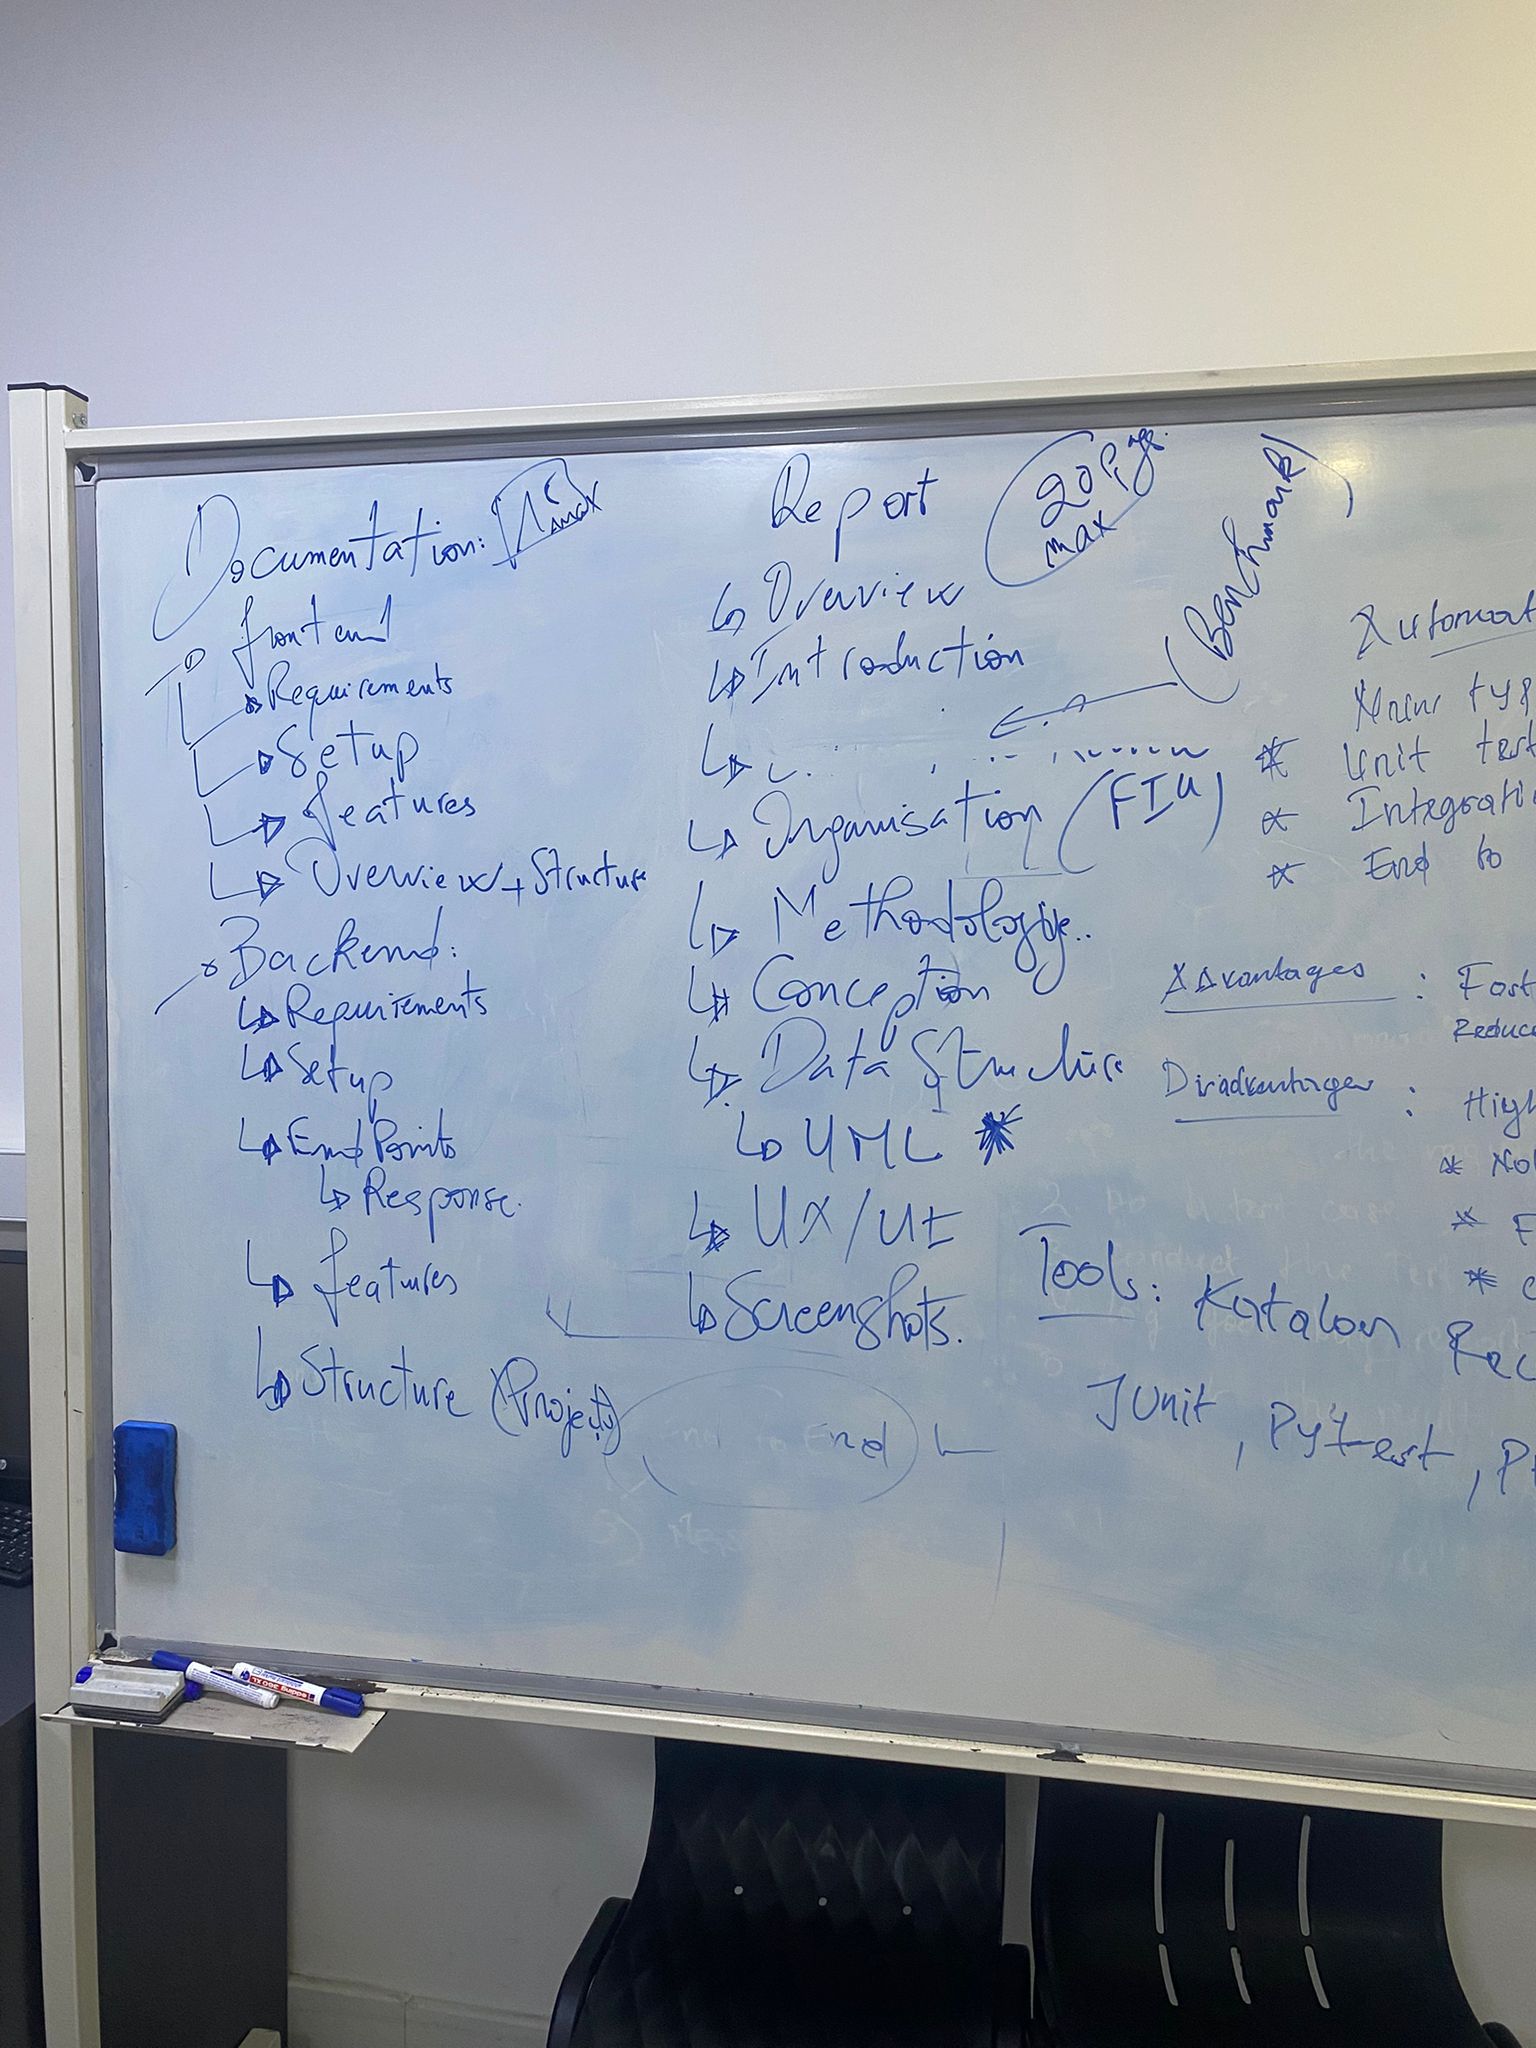 Documentation:
max
frontend
Requirements
Setup
features
Overview + Structure
Backend:
Requirements
Setup
EndPoints
Response.
features
Structure (Project)
Report
20 Pages.
max
Overview
Introduction
(Benchmark)
Organisation (FIU)
Methodologie..
Conception
Data Structure
UML *
UX/UI
Screenshots.
End
Automat
typ
* Unit test
* Integrati
* End to
Advantages : Fast
Reduce
Disadvantages : High
* No
* F
*
Tools: Katalon Rec
JUnit, Pytest, P
edding 360 XL